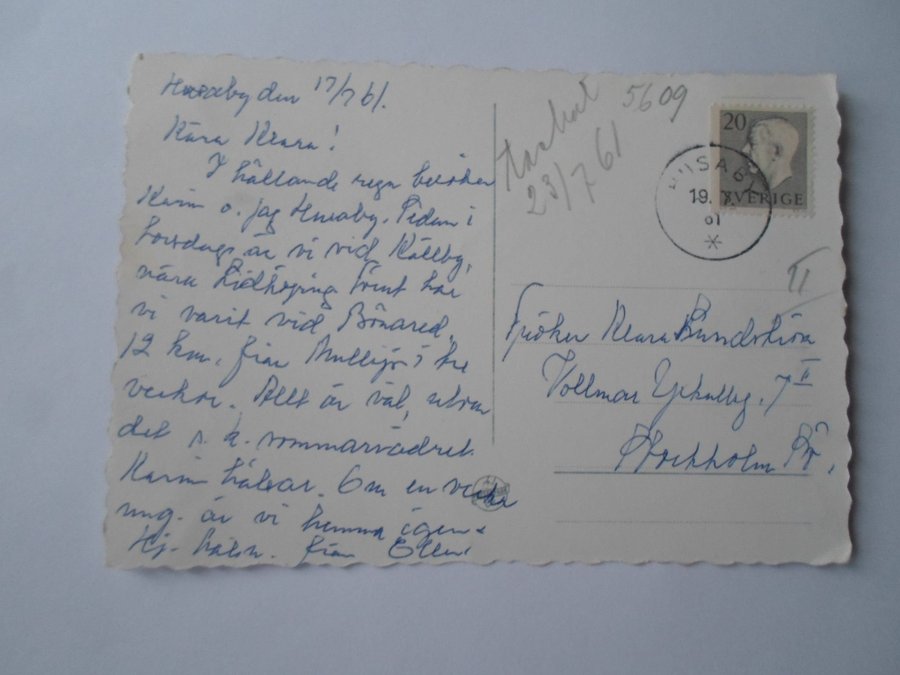 Husaby den 17/7 61.
Kära Klara!
I hällande regn besöker
Karin o. jag Husaby. Sedan i
torsdags är vi vid Källby,
nära Lidköping. Förut har
vi varit vid Bönared,
12 km. från Mullsjö i tre
veckor. Allt är väl, utom
det s.k. sommarvädret.
Karin hälsar. Om en vecka
ung. är vi hemma igen.
Hj. häls. från Ellen
5609
23/7 61
20
SVERIGE
HUSABY
19. 7
61
II
Fröken Klara Sundström
Vollmar Yxkullsg. 7 II
Stockholm Sö.